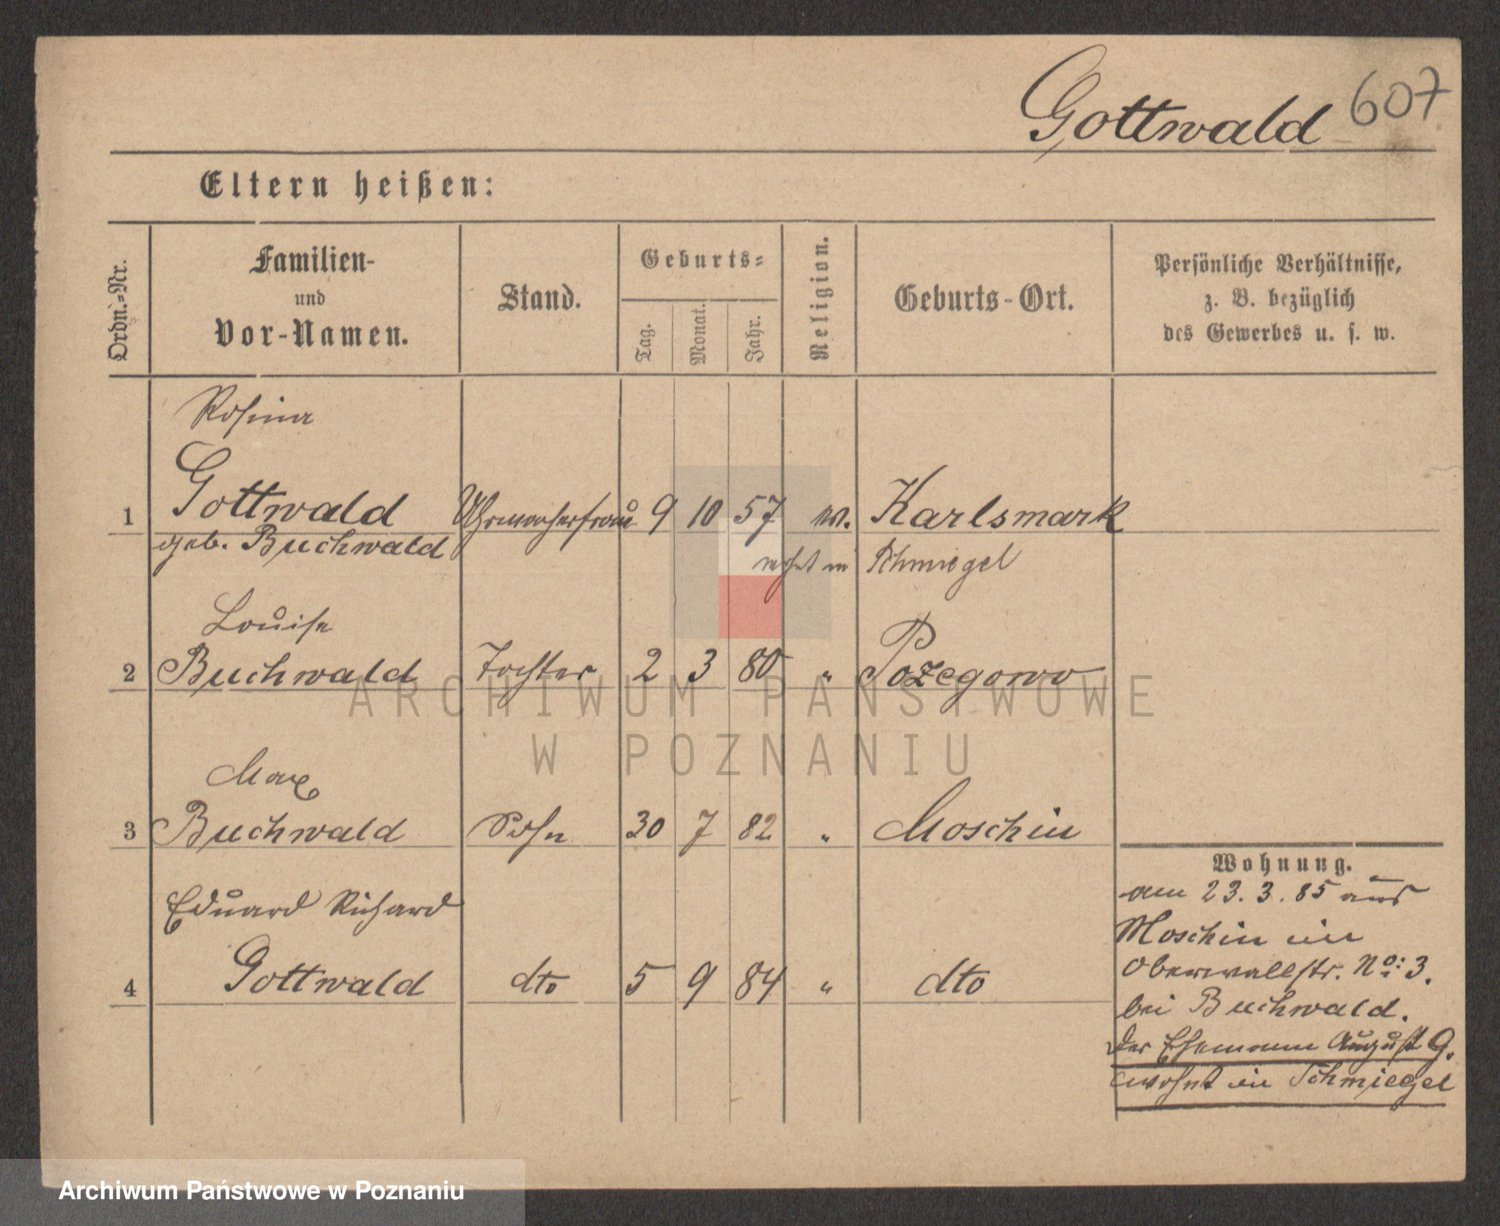 Gottwald 607
Eltern heißen:
Ordn.=Nr.
Familien-
und
Vor-Namen.
Stand.
Geburts=
Tag.
Monat.
Jahr.
Religion.
Geburts-Ort.
Persönliche Verhältnisse,
z. B. bezüglich
des Gewerbes u. s. w.
Rosina
1 Gottwald Uhrmacherfrau 9 10 57 Karlsmark
geb. Buchwald
wohnt in Schmiegel
Louise
2 Buchwald Tochter 2 3 80 " Pożegowo
Max
3 Buchwald Sohn 30 7 82 " Moschin
Eduard Richard
4 Gottwald dto 5 9 84 " dto
Wohnung.
am 23. 3. 85 aus
Moschin in
Oberwallstr. No: 3.
bei Buchwald.
Der Ehemann August G.
wohnt in Schmiegel
ARCHIWUM PAŃSTWOWE
W POZNANIU
Archiwum Państwowe w Poznaniu